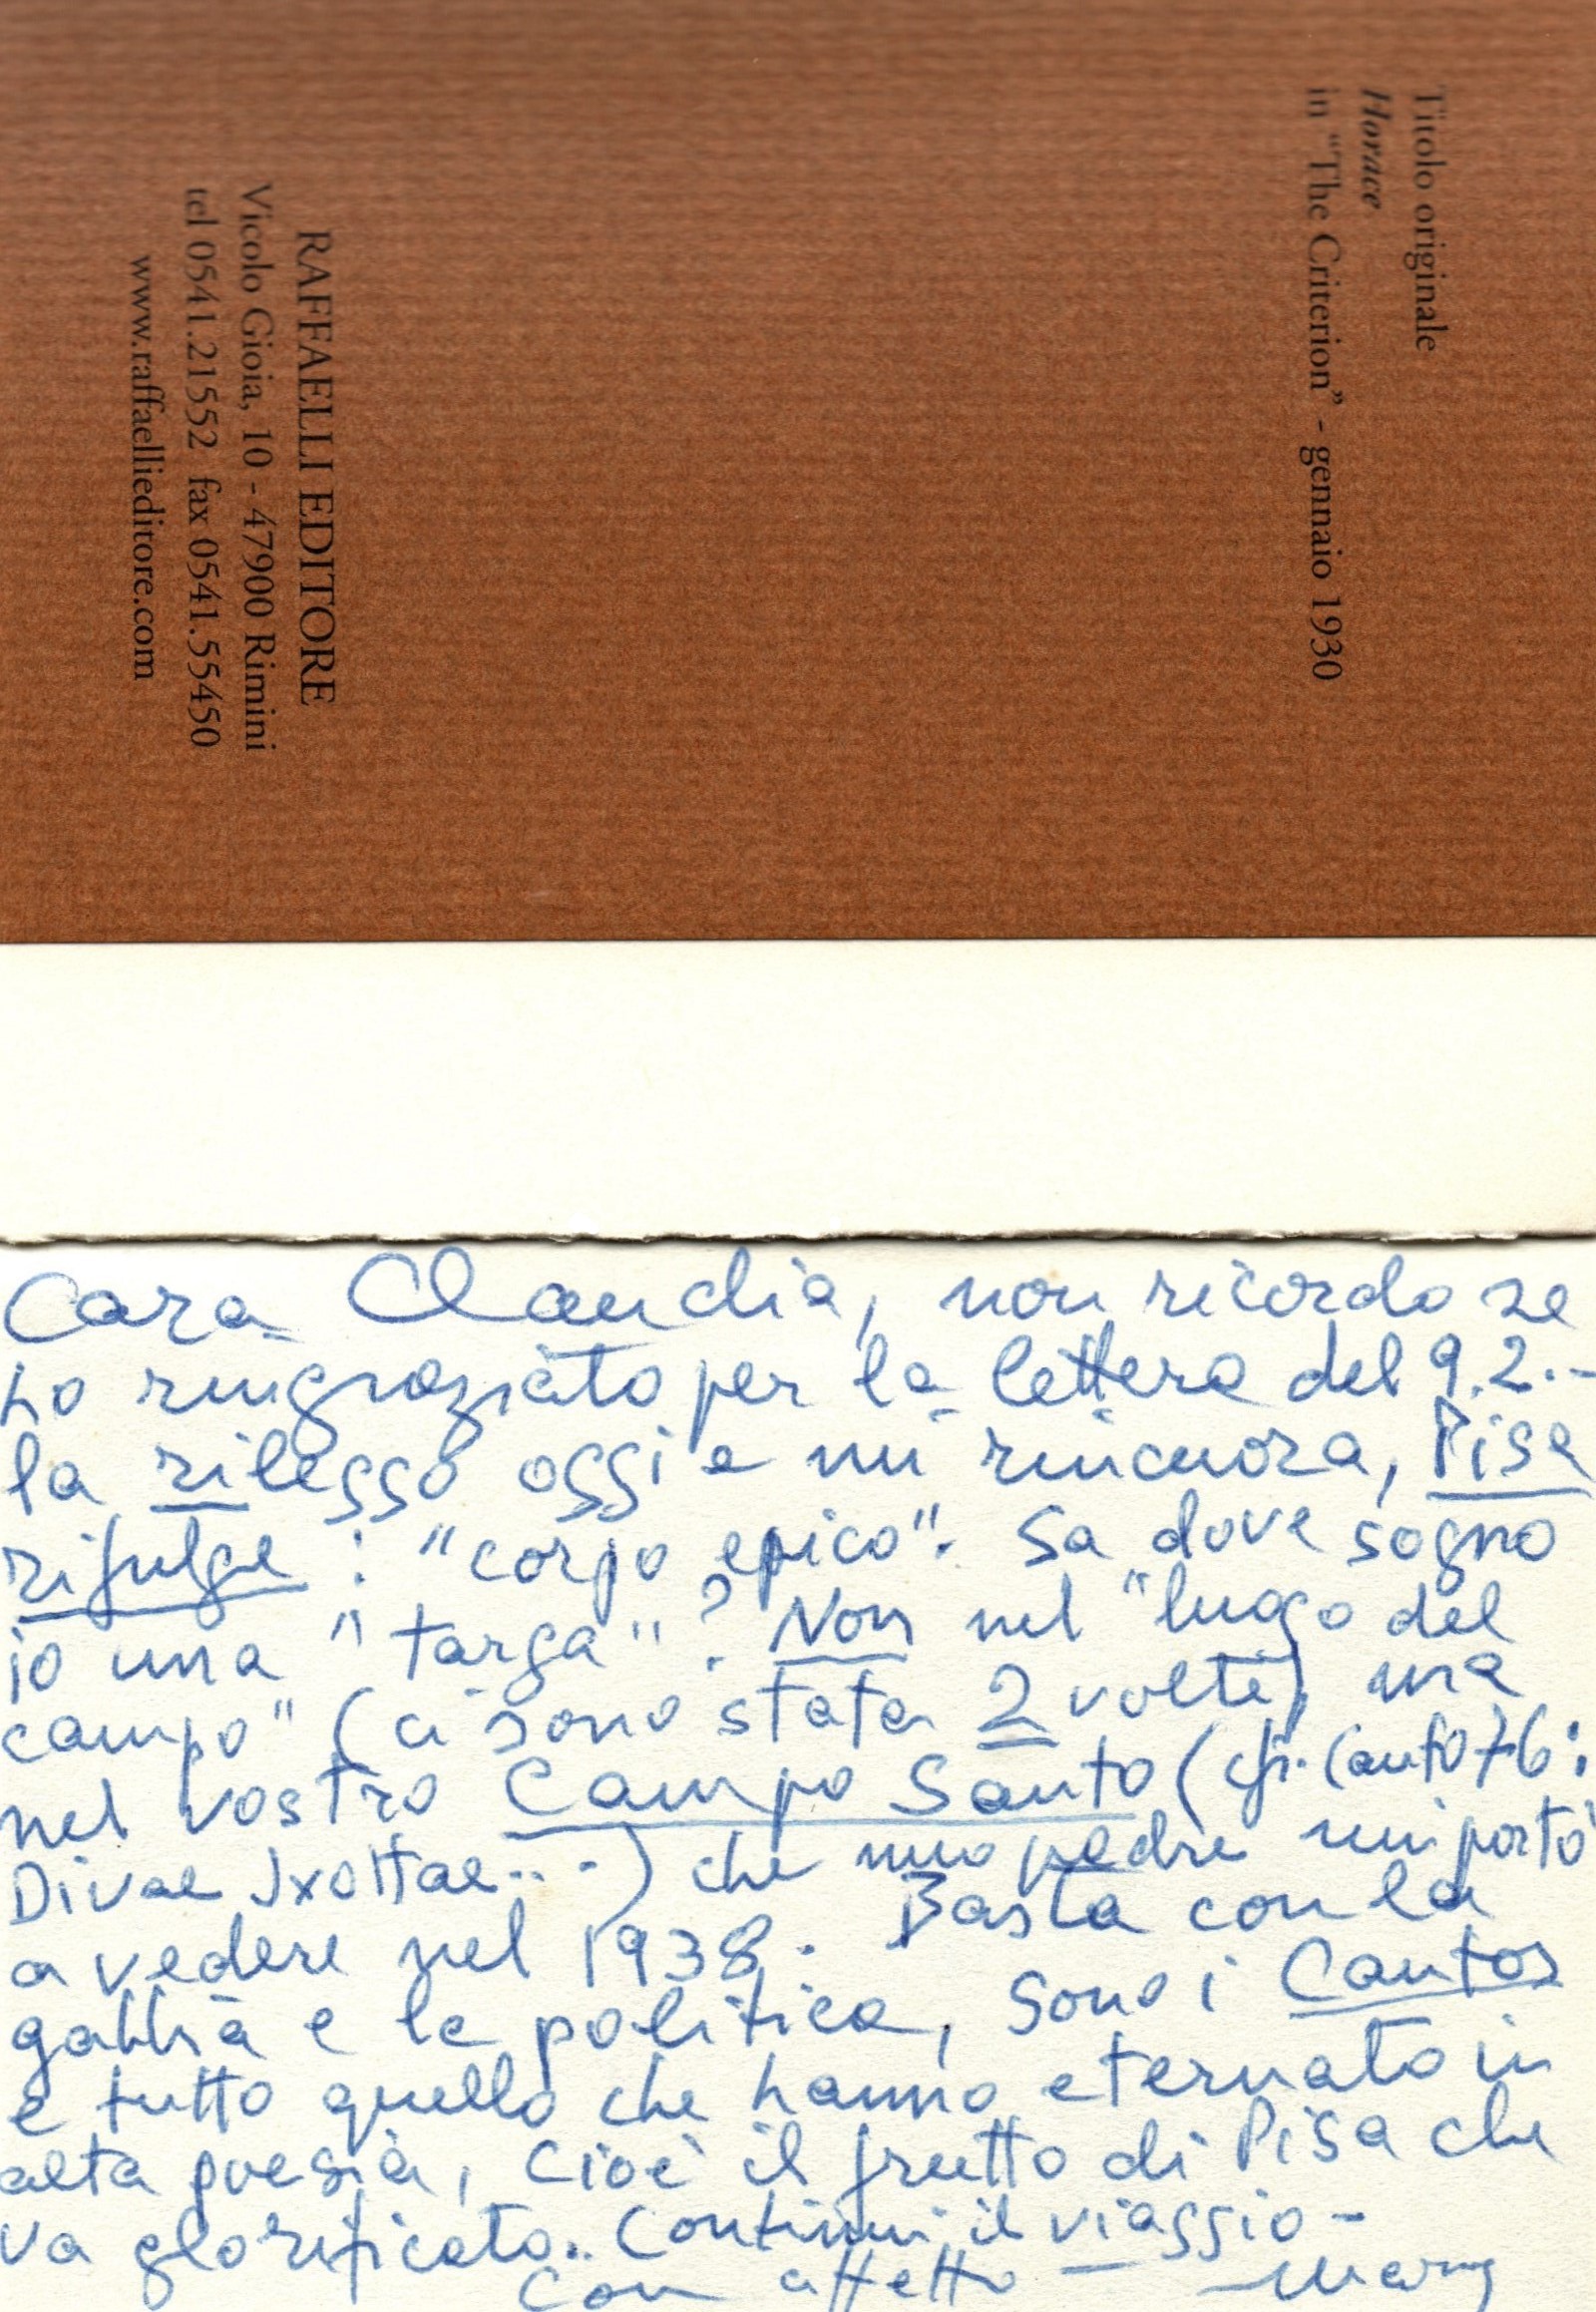 Titolo originale
Horace
in "The Criterion" - gennaio 1930
RAFFAELLI EDITORE
Vicolo Gioia, 10 - 47900 Rimini
tel 0541.21552 fax 0541.55450
www.raffaellieditore.com
Cara Claudia, non ricordo se
ho ringraziato per la lettera del 9.2.-
la rilessa oggi e mi rincuora, Pisa
rifulge : "corpo epico". Sa dove sogno
io una "targa"? Non nel "luogo del
campo" (ci sono stata 2 volte), ma
nel vostro Campo Santo (cfr. Canto 76:
Divae Ixottae...) che mio padre mi portò
a vedere nel 1938. Basta con la
gabbia e la politica, sono i Cantos
e tutto quello che hanno eternato in
alta poesia, cioè il frutto di Pisa che
va glorificato. Continui il viaggio -
Con affetto - Mary